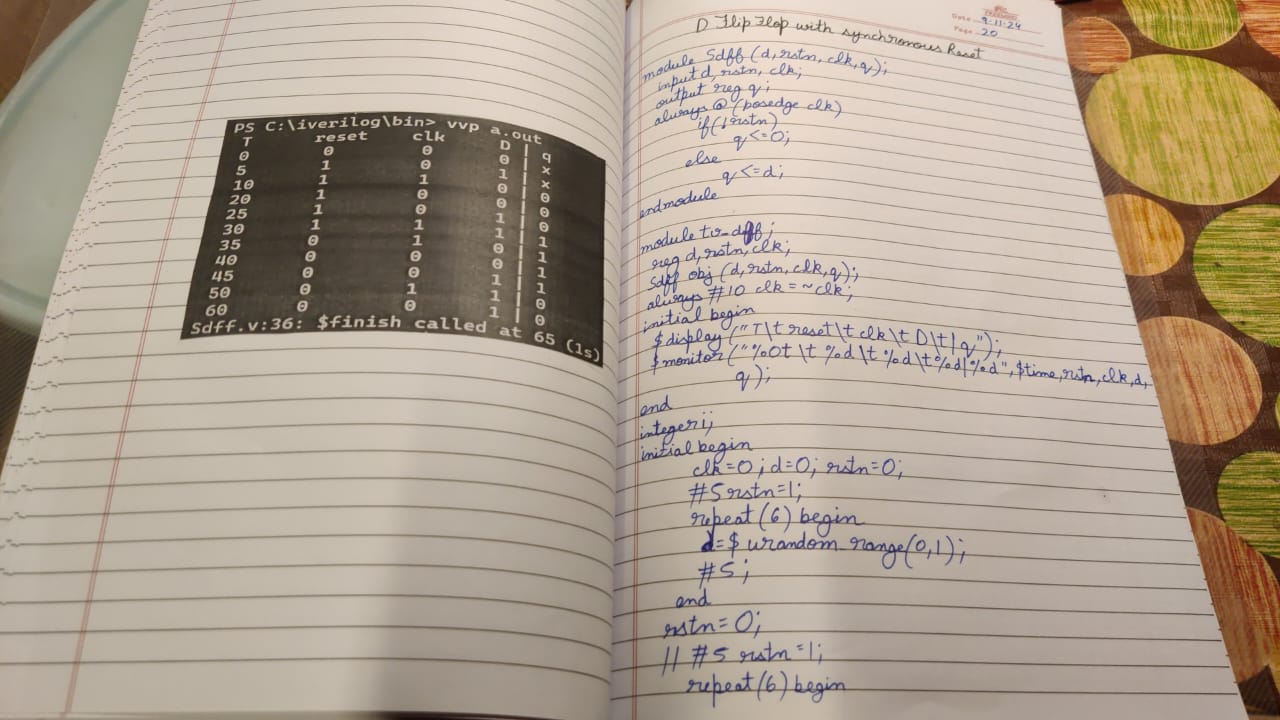 PS C:\iverilog\bin> vvp a.out
T reset clk D | q
0 0 0 0 | x
5 1 0 1 | x
10 1 1 0 | 0
20 1 0 0 | 0
25 1 0 1 | 0
30 1 1 1 | 1
35 0 1 0 | 1
40 0 0 0 | 1
45 0 0 1 | 1
50 0 1 1 | 0
60 0 0 1 | 0
Sdff.v:36: $finish called at 65 (1s)
Date 9-11-24
Page 20
D Flip Flop with synchronous Reset
module Sdff (d, rstn, clk, q);
input d, rstn, clk;
output reg q;
always @ (posedge clk)
if(!rstn)
q<=0;
else
q<=d;
endmodule
module
reg d, rstn, clk;
Sdff obj (d, rstn, clk, q);
always #10 clk = ~clk;
initial begin
$display ("T\t reset\t clk\t D\t|q");
$monitor ("%0t \t %d\t %d\t%d|%d", $time, rstn, clk, d,
q);
end
integer i;
initial begin
clk=0; d=0; rstn=0;
#5 rstn=1;
repeat (6) begin
d=$ urandom range(0,1);
#5;
end
rstn=0;
// #5 rstn=1;
repeat (6) begin